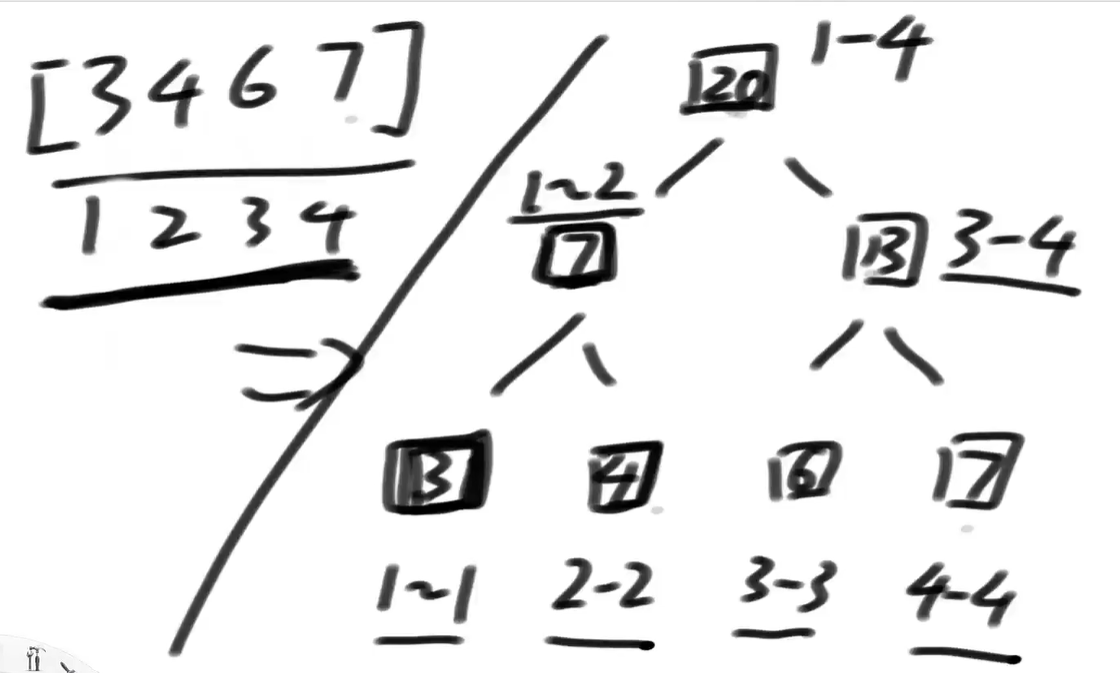 [3 4 6 7]
1 2 3 4
=>
20 1-4
1~2
7
13 3-4
3 4 6 7
1~1 2-2 3-3 4-4